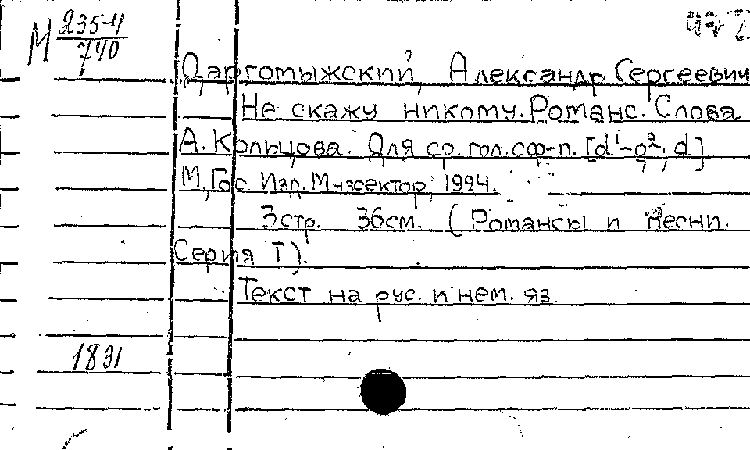 М 235-4
740
Даргомыжский, Александр Сергеевич
Не скажу никому. Романс. Слова
А. Кольцова. Для ср. гол. с ф-п. [d¹-g²; d]
М, Гос. Изд. Музсектор, 1924.
3 стр. 36 см. (Романсы и песни.
Серия I).
Текст на рус. и нем. яз
1831